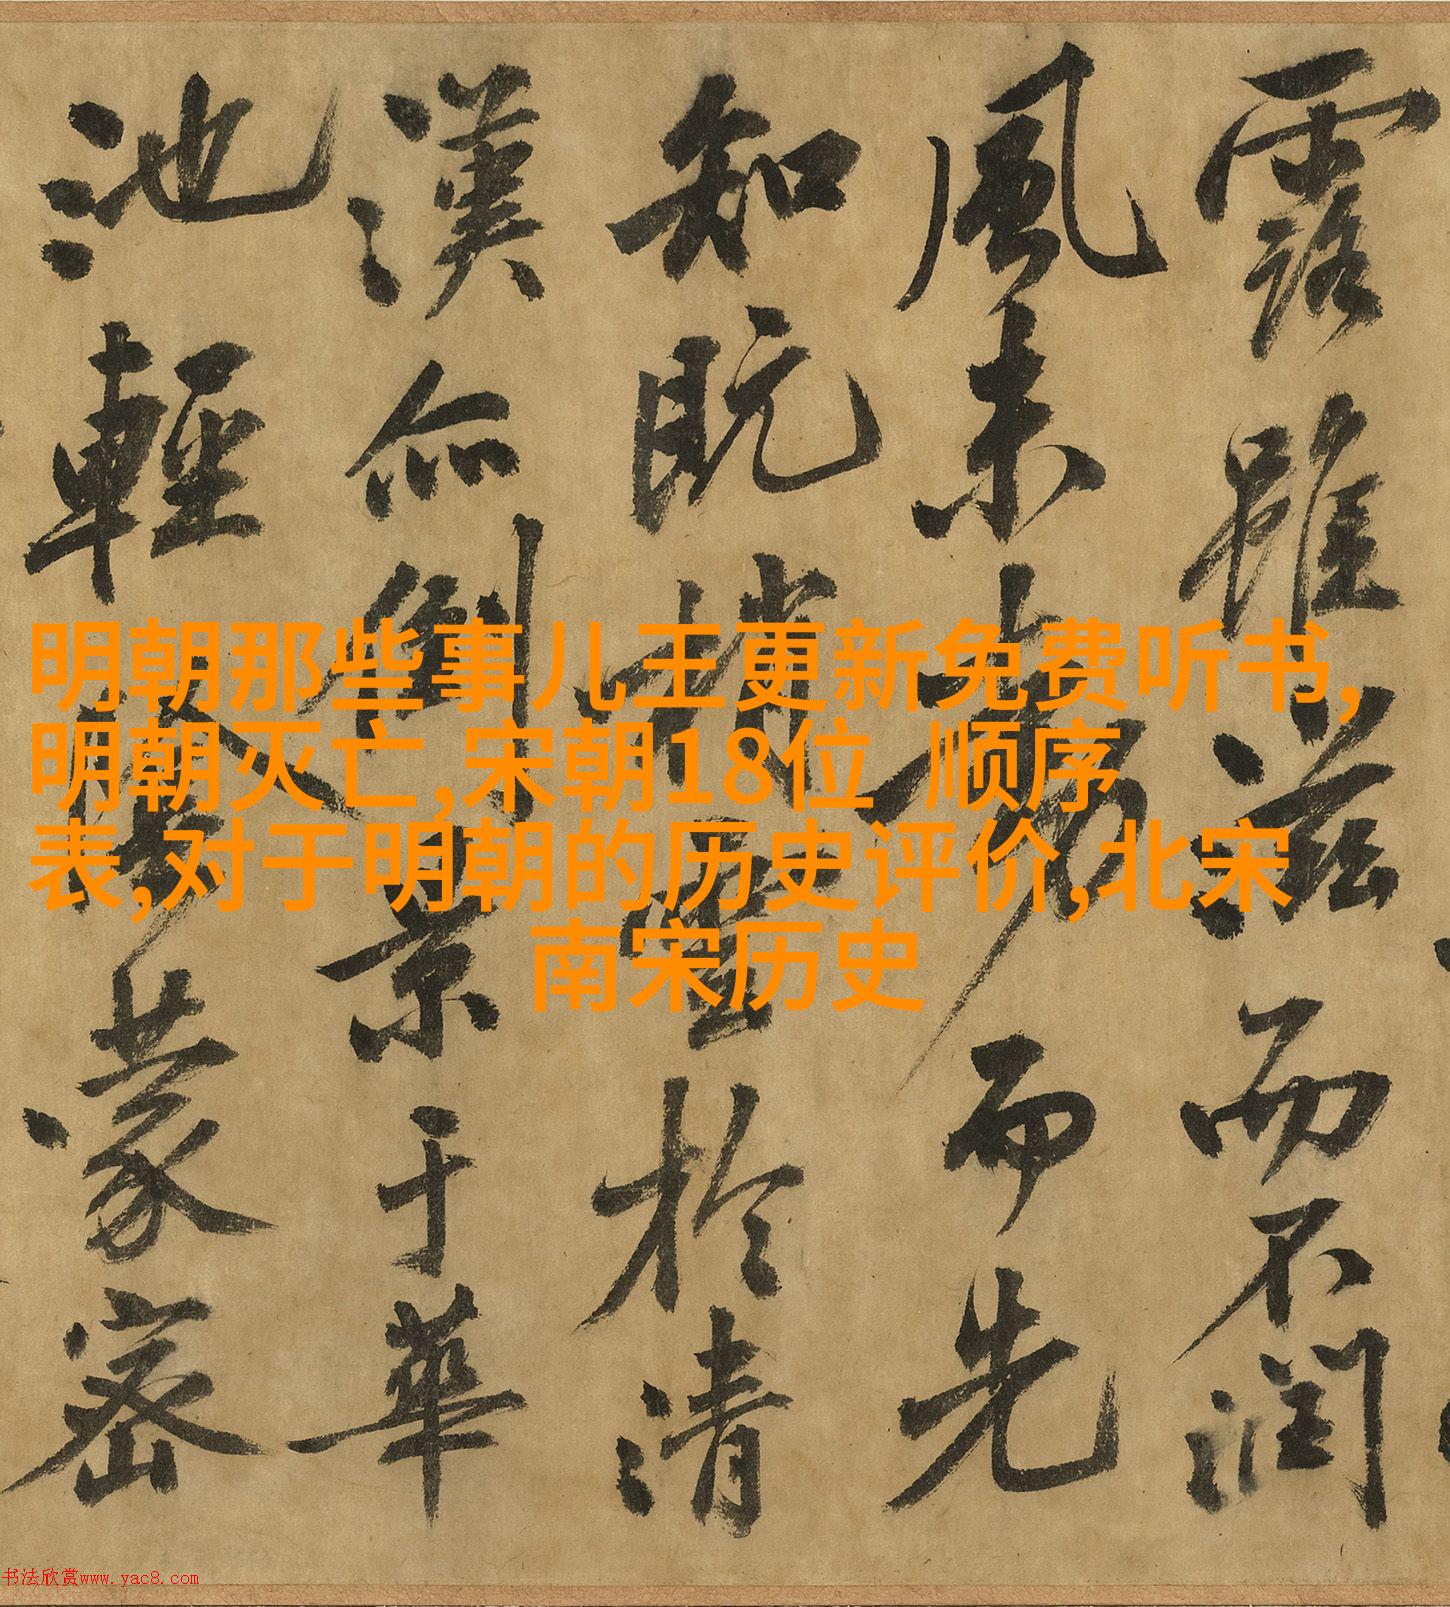 露雖滋而不潤
風未而先
知既於清
漢亦倒景于華
池輕蒙密
明朝那些事儿王更新免费听书,
明朝灭亡,宋朝18位 顺序
表,对于明朝的历史评价,北宋
南宋历史
书法欣赏www.yac8.com